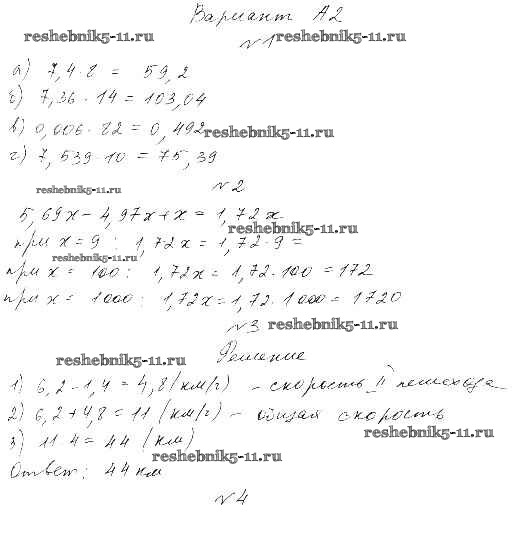 Вариант А2
reshebnik5-11.ru №1 reshebnik5-11.ru
а) 7,4·8 = 59,2
б) 7,36·14=103,04
в) 0,006·82=0,492 reshebnik5-11.ru
г) 7,539·10=75,39
reshebnik5-11.ru №2
5,69x-4,97x+x=1,72x
reshebnik5-11.ru
при x=9: 1,72x=1,72·9=
reshebnik5-11.ru
при x= 100: 1,72x=1,72·100=172
при x= 1000: 1,72x=1,72·1000=1720
№3 reshebnik5-11.ru
reshebnik5-11.ru Решение
1) 6,2-1,4=4,8(км/ч) - скорость II пешехода
2) 6,2+4,8=11(км/ч)- общая скорость
reshebnik5-11.ru
3) 11·4=44(км)
reshebnik5-11.ru
Ответ: 44км
№4